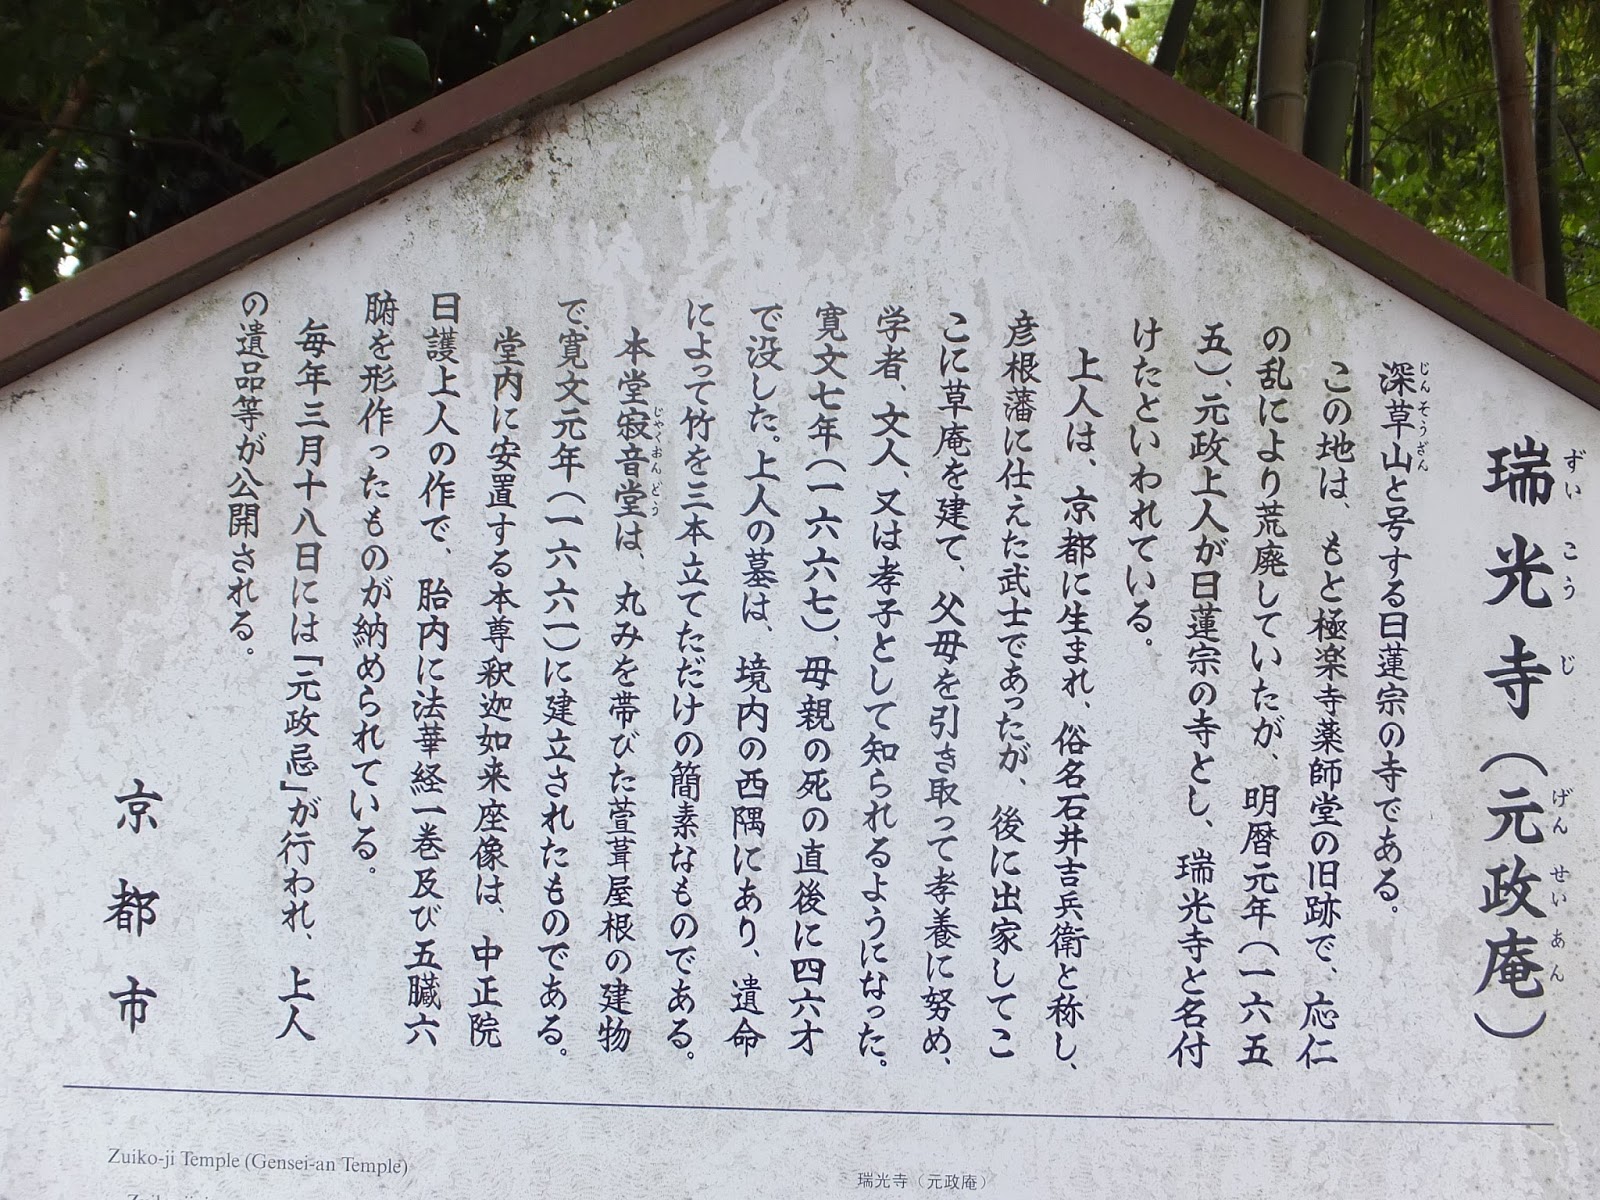 瑞光寺（元政庵）
ずいこうじ　げんせいあん
深草山と号する日蓮宗の寺である。
じんそうざん
この地は、もと極楽寺薬師堂の旧跡で、応仁
の乱により荒廃していたが、明暦元年（一六五
五）、元政上人が日蓮宗の寺とし、瑞光寺と名付
けたといわれている。
上人は、京都に生まれ、俗名石井吉兵衛と称し、
彦根藩に仕えた武士であったが、後に出家してこ
こに草庵を建て、父母を引き取って孝養に努め、
学者、文人、又は孝子として知られるようになった。
寛文七年（一六六七）、母親の死の直後に四六才
で没した。上人の墓は、境内の西隅にあり、遺命
によって竹を三本立てただけの簡素なものである。
本堂寂音堂は、丸みを帯びた萱葺屋根の建物
じゃくおんどう
で、寛文元年（一六六一）に建立されたものである。
堂内に安置する本尊釈迦如来座像は、中正院
日護上人の作で、胎内に法華経一巻及び五臓六
腑を形作ったものが納められている。
毎年三月十八日には「元政忌」が行われ、上人
の遺品等が公開される。
京都市
Zuiko-ji Temple (Gensei-an Temple)
瑞光寺（元政庵）